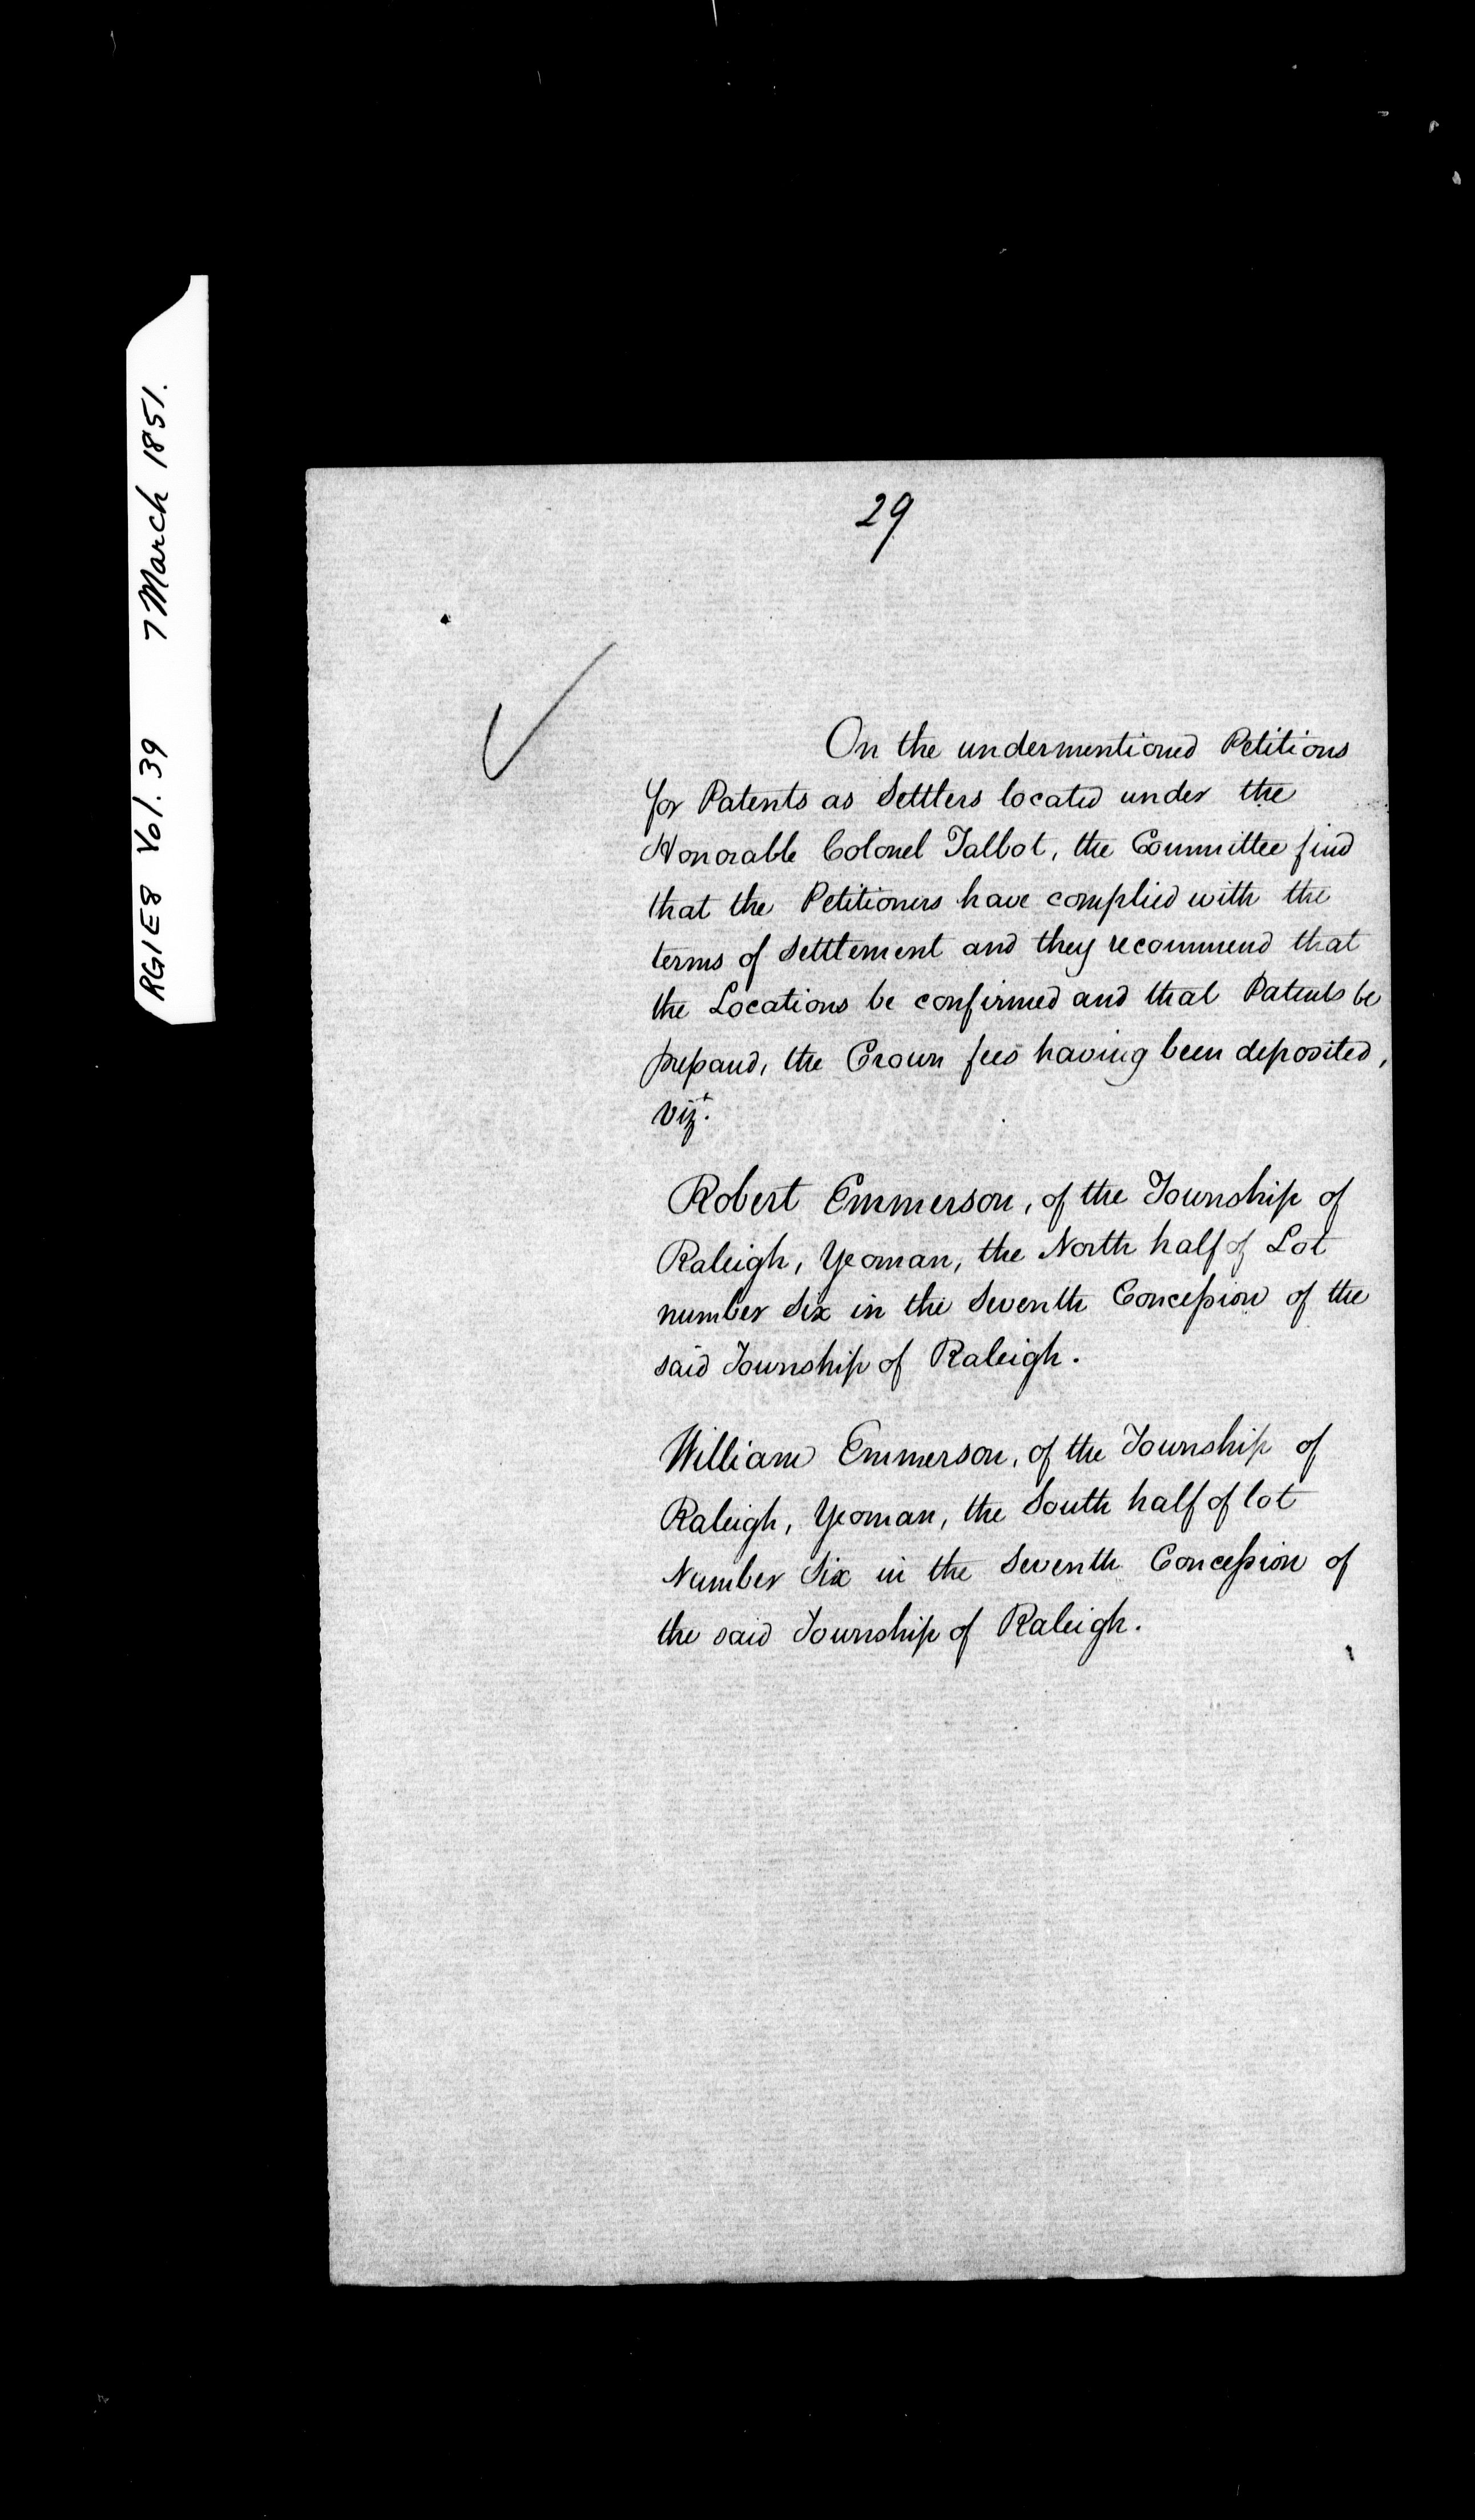 RG1E8 Vol. 39 7 March 1851.
29
On the undermentioned Petitions
for Patents as Settlers located under the
Honorable Colonel Talbot, the Committee find
that the Petitioners have complied with the
terms of Settlement and they recommend that
the Locations be confirmed and that Patents be
prepared, the Crown fees having been deposited,
vizt.
Robert Emmerson, of the Township of
Raleigh, Yeoman, the North half of Lot
number Six in the Seventh Concession of the
said Township of Raleigh.
William Emmerson, of the Township of
Raleigh, Yeoman, the South half of lot
Number Six in the Seventh Concession of
the said Township of Raleigh.